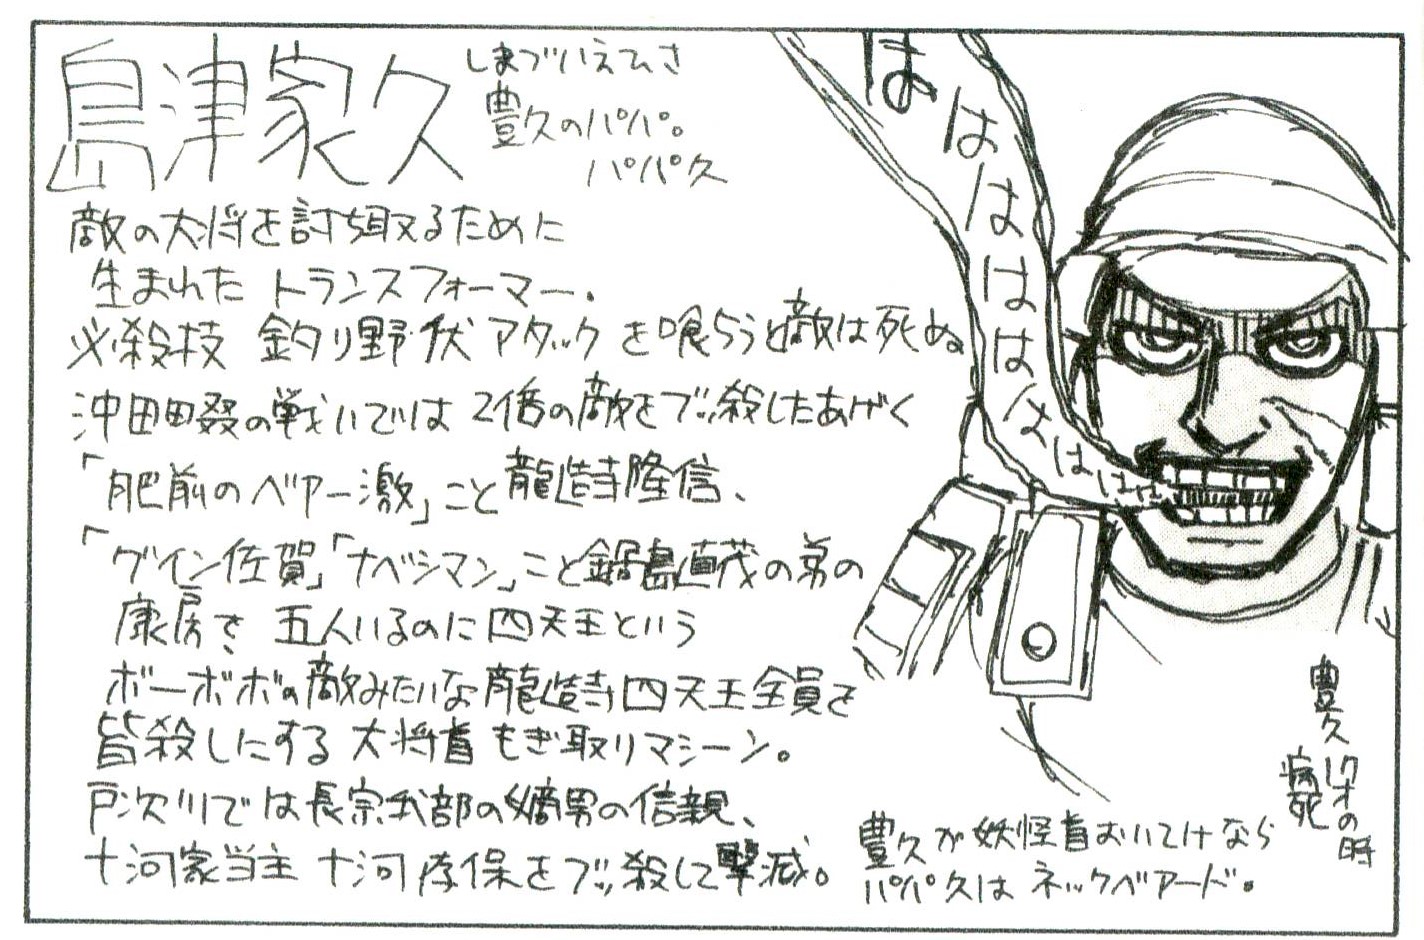 島津家久
しまづいえひさ
豊久のパパ。
パパ久
敵の大将を討ち取るために
生まれた トランスフォーマー.
必殺技 釣り野伏アタック を喰らうと敵は死ぬ
沖田田畷の戦いでは 2倍の敵をブッ殺したあげく
「肥前のベアー激」こと龍造寺隆信、
「グイン佐賀」「ナベシマン」こと鍋島直茂の弟の
康房を 五人いるのに四天王という
ボーボボの敵みたいな龍造寺四天王全員を
皆殺しにする 大将首もぎ取りマシーン。
戸次川では長宗我部の嫡男の信親、
十河家当主 十河存保をブッ殺して撃滅。
はははははははははは
豊久17才の時
病死
豊久が妖怪首おいてけなら
パパ久は ネックベアード。